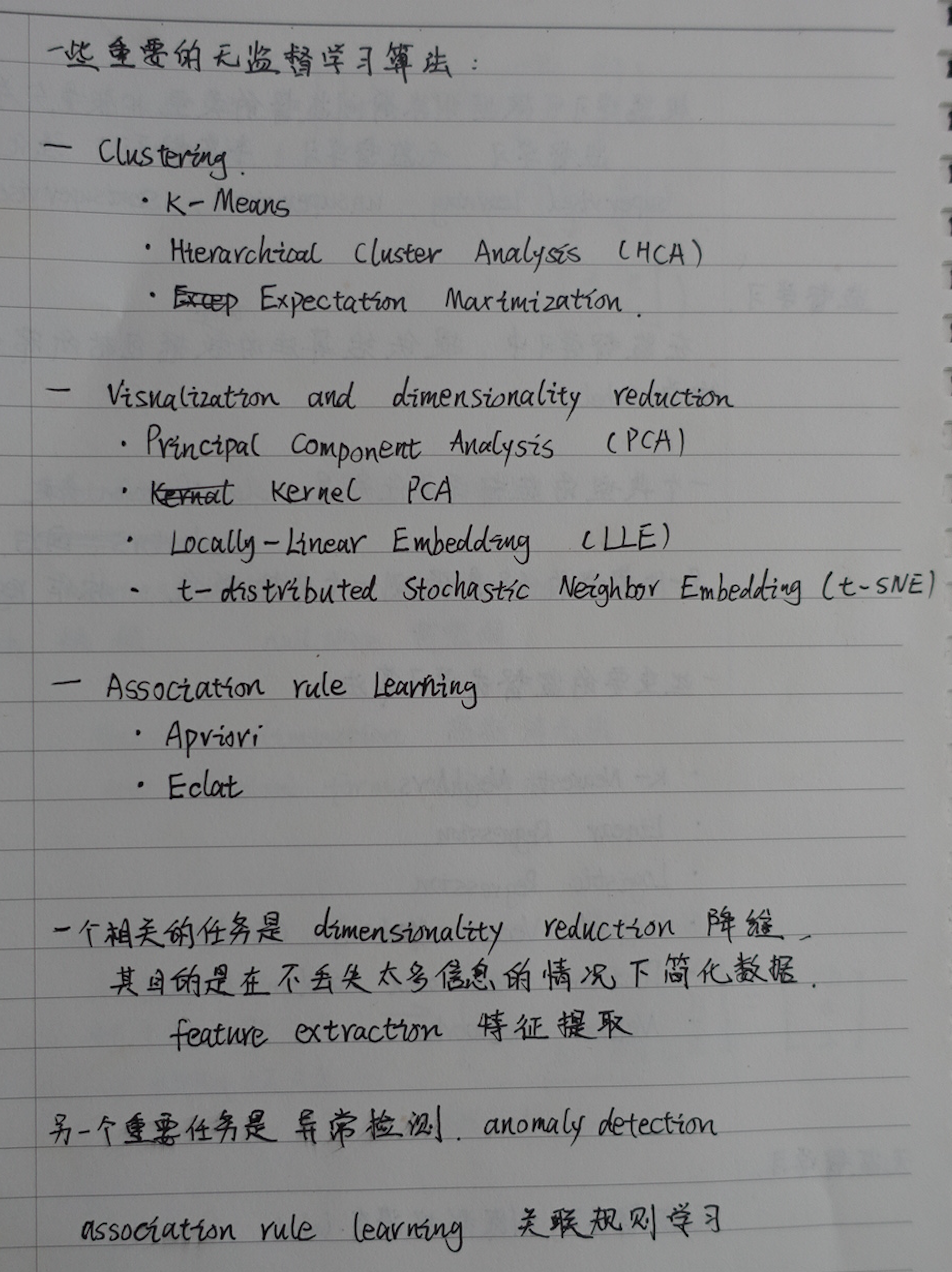 一些重要的无监督学习算法：
— Clustering.
· K-Means
· Hierarchical Cluster Analysis (HCA)
· Excep Expectation Maximization.
— Visualization and dimensionality reduction
· Principal Component Analysis (PCA)
· Kernat Kernel PCA
· Locally-Linear Embedding (LLE)
· t-distributed Stochastic Neighbor Embedding (t-SNE)
— Association rule Learning
· Apriori
· Eclat
一个相关的任务是 dimensionality reduction 降维，
其目的是在不丢失太多信息的情况下简化数据.
feature extraction 特征提取
另一个重要任务是 异常检测. anomaly detection
association rule learning 关联规则学习